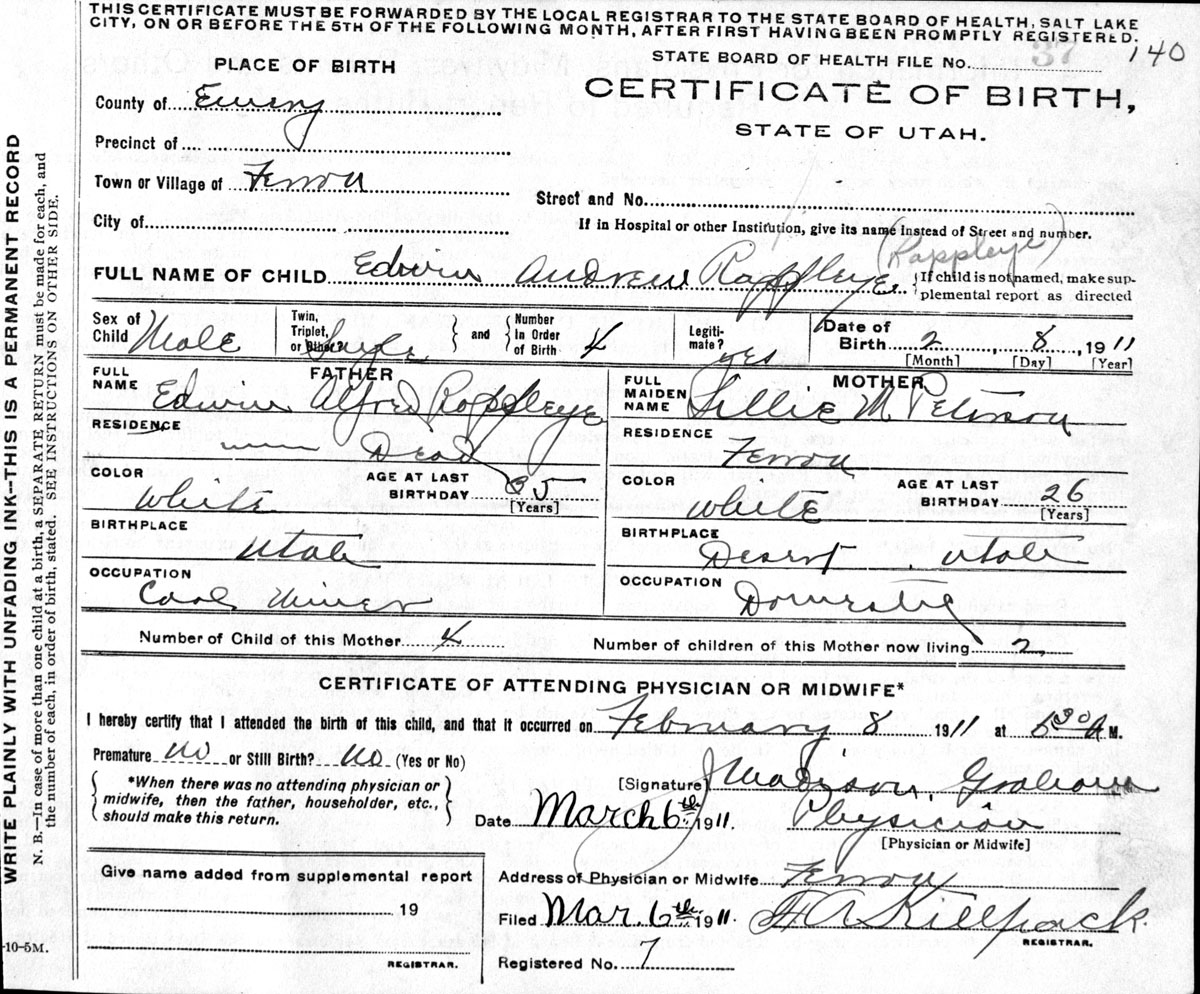 THIS CERTIFICATE MUST BE FORWARDED BY THE LOCAL REGISTRAR TO THE STATE BOARD OF HEALTH, SALT LAKE
CITY, ON OR BEFORE THE 5TH OF THE FOLLOWING MONTH, AFTER FIRST HAVING BEEN PROMPTLY REGISTERED.
140
PLACE OF BIRTH
STATE BOARD OF HEALTH FILE No. 37
County of Emery
CERTIFICATE OF BIRTH,
STATE OF UTAH.
Precinct of
Town or Village of Ferron
Street and No.
City of
If in Hospital or other Institution, give its name instead of Street and number.
(Rappleye)
FULL NAME OF CHILD Edwin Andrew Rappleye
{If child is not named, make sup-
plemental report as directed
Sex of Child Male
Twin, Triplet, or Other? Single
and
Number In Order of Birth 4
Legiti-mate? yes
Date of Birth 2, 8, 1911
[Month] [Day] [Year]
FATHER
FULL NAME Edwin Alfred Rappleye
RESIDENCE Dead
COLOR White
AGE AT LAST BIRTHDAY 35 [Years]
BIRTHPLACE Utah
OCCUPATION Coal Miner
MOTHER
FULL MAIDEN NAME Lillie M. Peterson
RESIDENCE Ferron
COLOR White
AGE AT LAST BIRTHDAY 26 [Years]
BIRTHPLACE Desert, Utah
OCCUPATION Domestic
Number of Child of this Mother 4
Number of children of this Mother now living 2
CERTIFICATE OF ATTENDING PHYSICIAN OR MIDWIFE*
I hereby certify that I attended the birth of this child, and that it occurred on February 8 1911 at 630 A M.
Premature no or Still Birth? No (Yes or No)
*When there was no attending physician or
midwife, then the father, householder, etc.,
should make this return.
[Signature] J Madison Graham
Date March 6th 1911.
Physician
[Physician or Midwife]
Give name added from supplemental report
19
REGISTRAR.
Address of Physician or Midwife Ferron
Filed Mar. 6th 1911.
H A Killpack.
REGISTRAR.
Registered No. 7
-10-5M.
WRITE PLAINLY WITH UNFADING INK—THIS IS A PERMANENT RECORD
N. B.—In case of more than one child at a birth, a SEPARATE RETURN must be made for each, and
the number of each, in order of birth, stated. SEE INSTRUCTIONS ON OTHER SIDE.